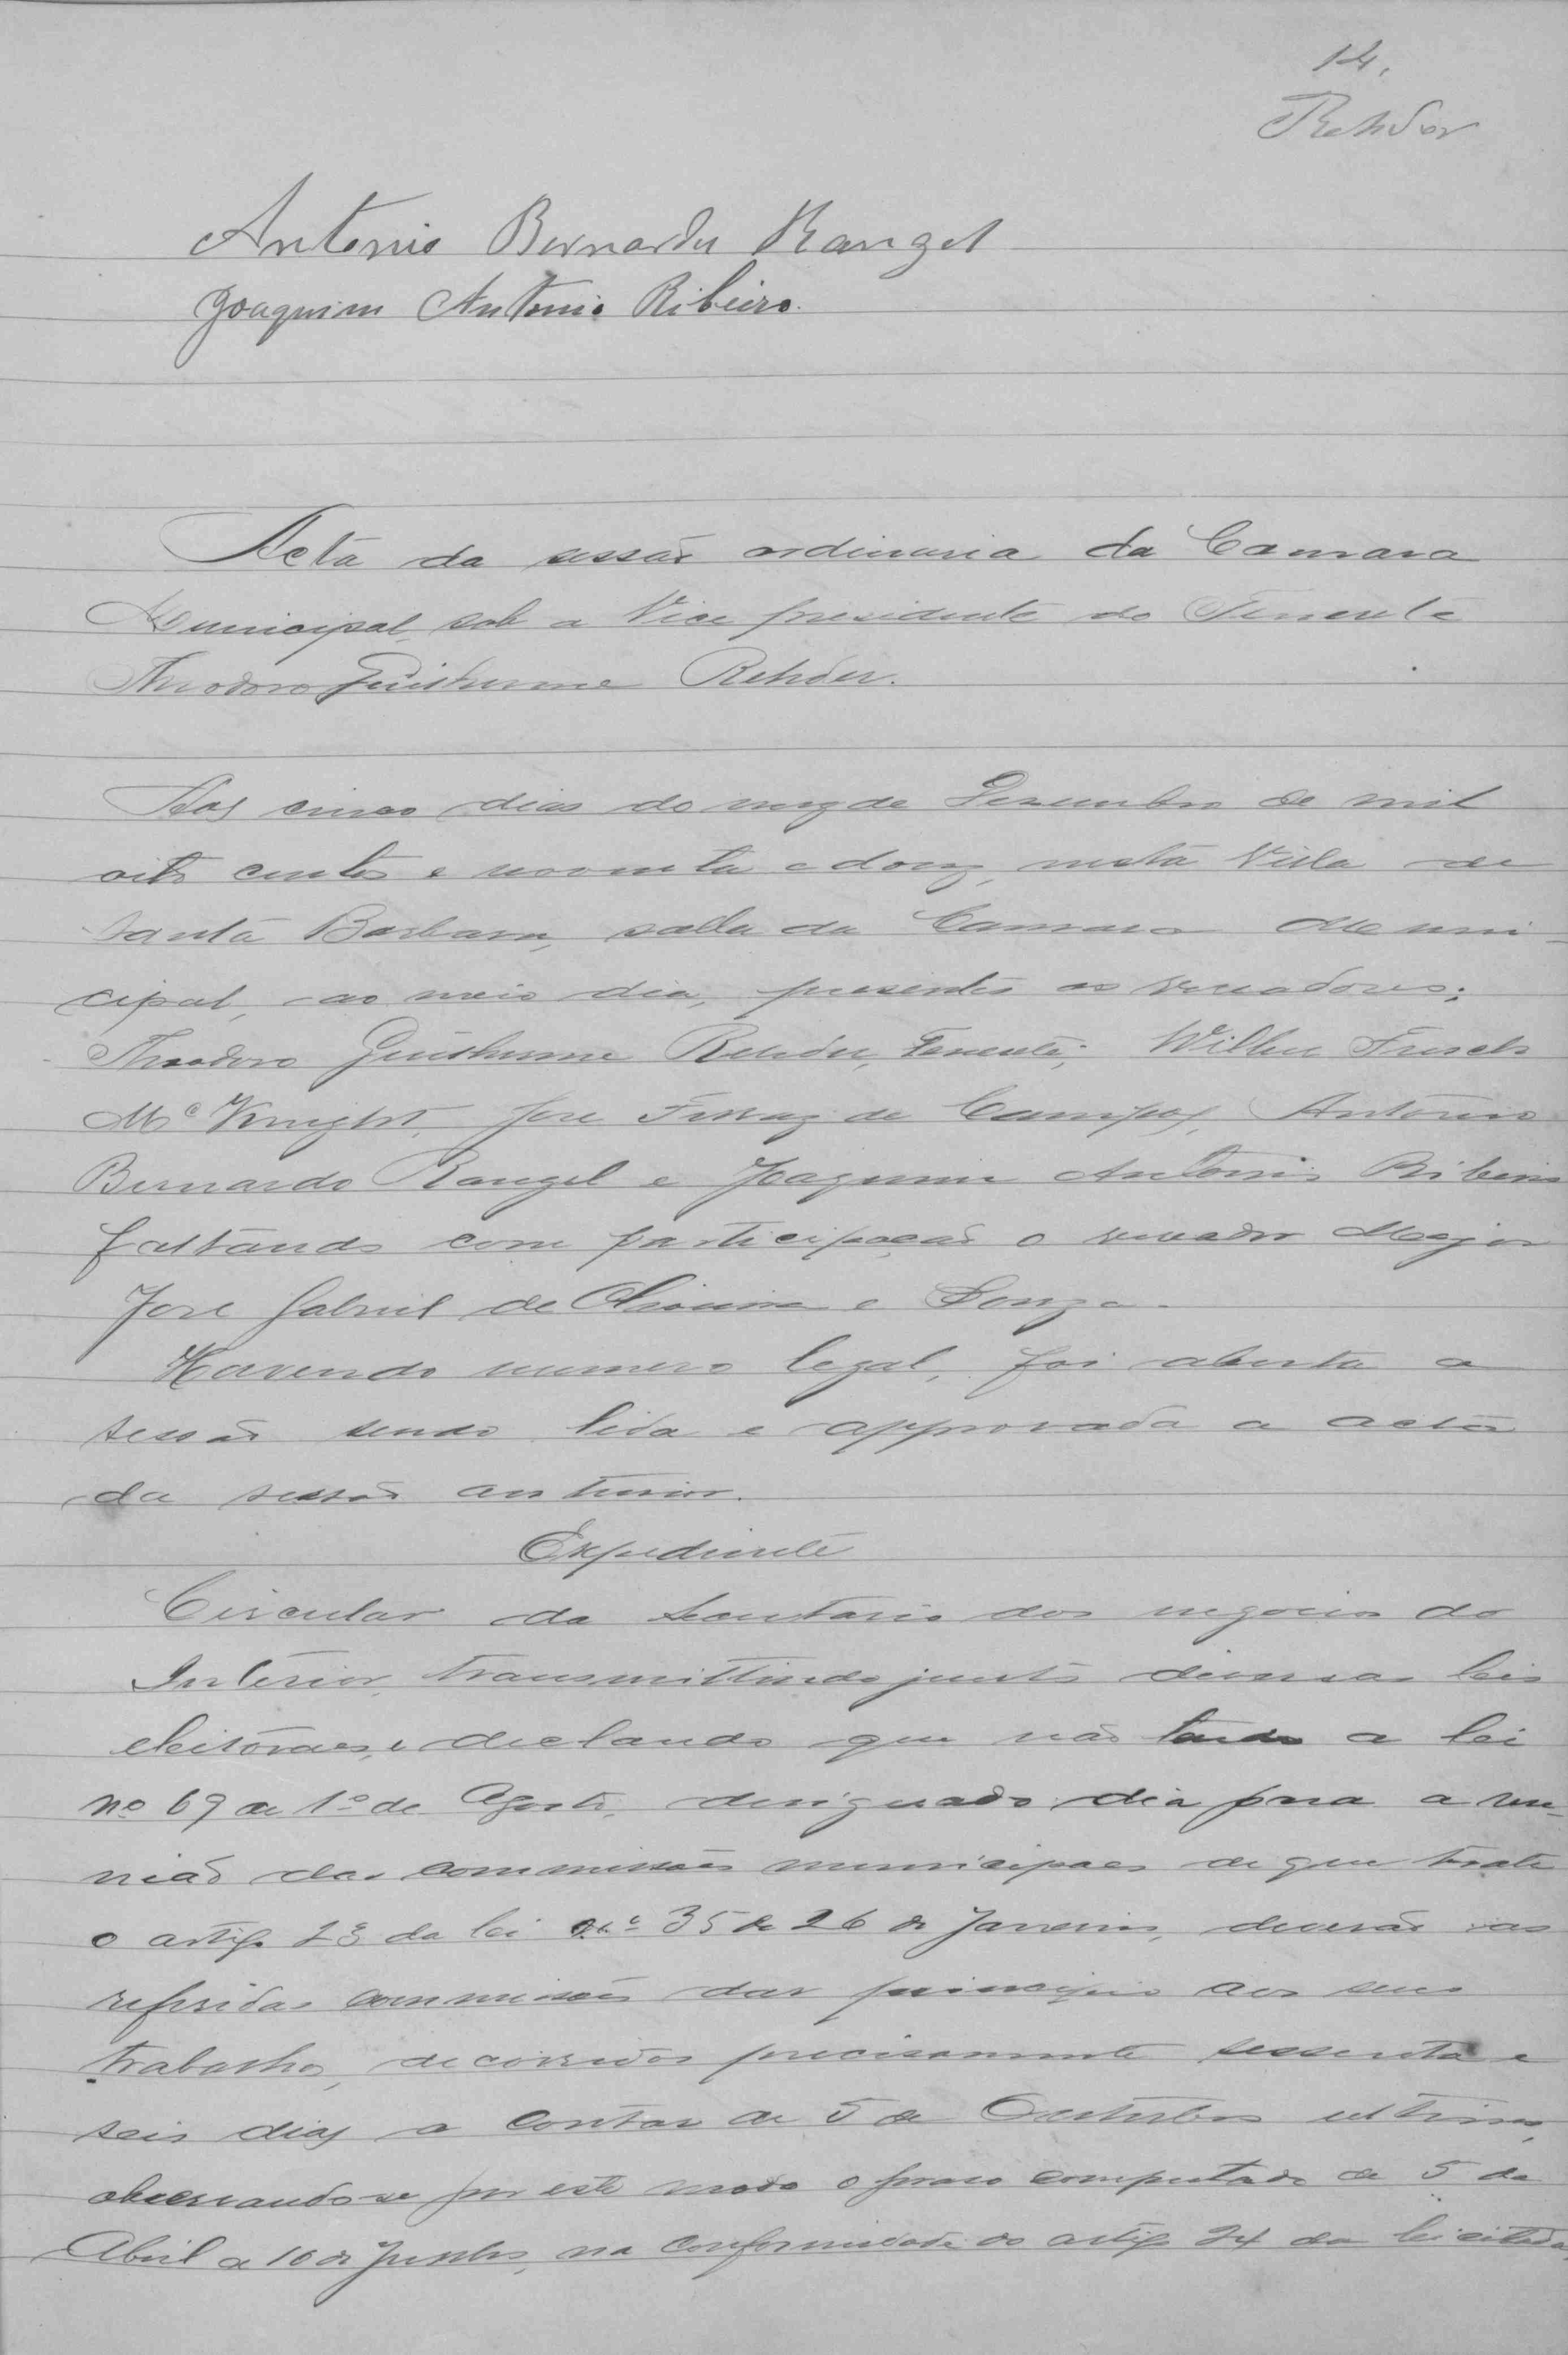 14.
Rehder
Antonio Bernardes Rangel
Joaquim Antonio Ribeiro.
Acta da sessão ordinaria da Camara
Municipal, sob a Vice presidente do Tenente
Theodoro Guilherme Rehder.
Aos cinco dias do mez de Dezembro de mil
oito centos e noventa e douz, nesta Villa de
Santa Barbara, salla da Camara Muni-
cipal, ao meio dia, presentes os vereadores;
Theodoro Guilherme Rehder, Tenente; Wilber
Mc Knight, José Ferraz de Campos, Antonio
Bernardo Rangel e Joaquim Antonio Ribeiro
faltando com participação o vereador Major
José Gabriel de Oliveira e Souza.
Havendo numero legal, foi aberta a
sessão sendo lida e approvada a acta
da sessão anterior.
Expediente
Circular do Secretario dos negocios do
Interior, transmittindo junto diversas leis
eleitoraes, e declando que não tendo a lei
nº 69 de 1º de Agosto, designado dia para a reu-
nião das commissões municipaes de que trata
o artigo 23 da lei nº 35 de 26 de Janeiro, deverão as
referidas commissões dar principio aos seus
trabalhos, decorridos precisamente sessenta e
seis dias a contar de 5 de Outubro ultimo,
observando-se por este modo o praso computado de 5 de
Abril a 10 de Junho, na conformidade do artigo 24 da lei citada